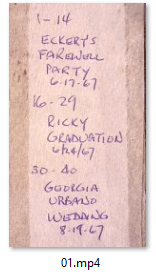 1-14
ECKERT'S
FAREWELL
PARTY
6-17-67
16-29
RICKY
GRADUATION
6/24/67
30-40
GEORGIA
URBANO
WEDDING
8-19-67
01.mp4